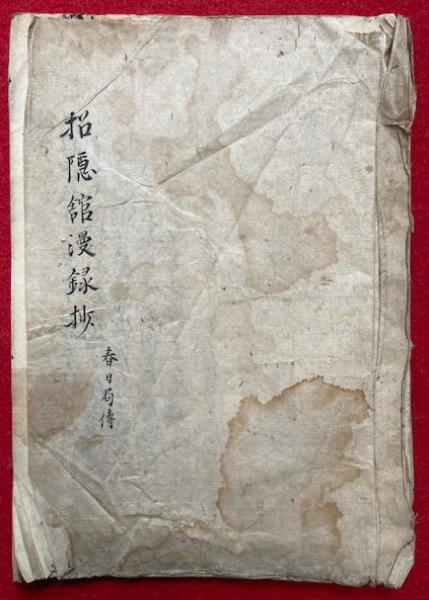 招隠舘漫録抄
春日局傳